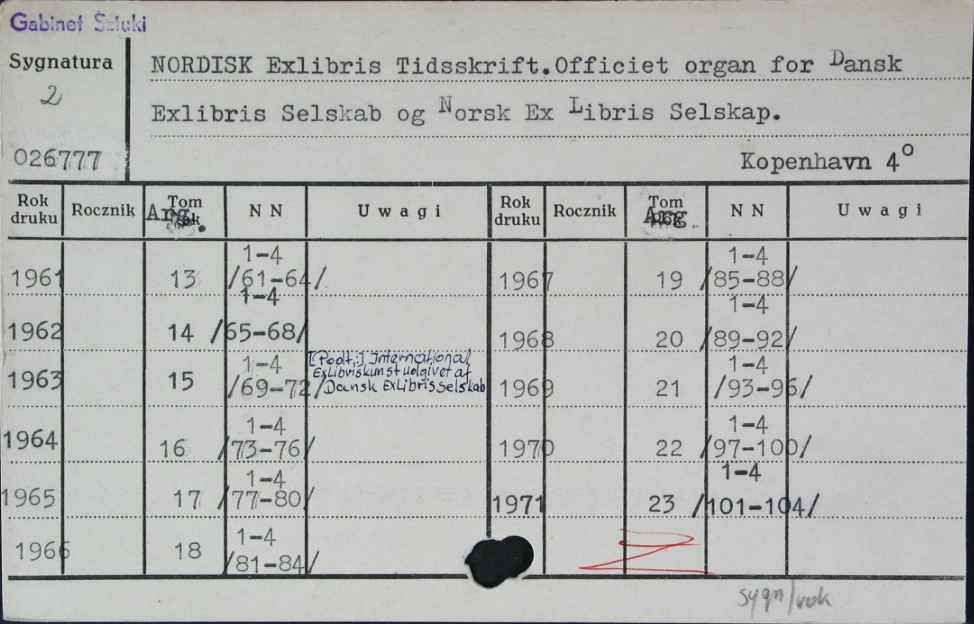 Gabinet Sztuki
Sygnatura
2
026777
NORDISK Exlibris Tidsskrift.Officiet organ for Dansk
Exlibris Selskab og Norsk Ex Libris Selskap.
Kopenhavn 4º
Rok druku Rocznik Tom Arg. N N Uwagi Rok druku Rocznik Tom Arg. N N Uwagi
1961 13 1-4 /61-64/
1962 14 1-4 /65-68/
1963 15 1-4 /69-72/ [Podt.:] International
Exlibriskunst udgivet af
Dansk Exlibris Selskab
1964 16 1-4 /73-76/
1965 17 1-4 /77-80/
1966 18 1-4 /81-84/
1967 19 1-4 /85-88/
1968 20 1-4 /89-92/
1969 21 1-4 /93-96/
1970 22 1-4 /97-100/
1971 23 1-4 /101-104/
sygn/rok